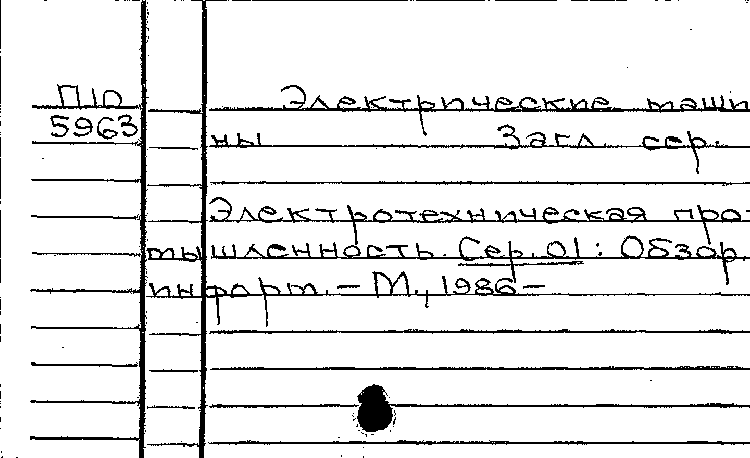 П10
5963
Электрические маши
ны Загл. сер.
Электротехническая про-
мышленность. Сер. 01: Обзор.
информ. – М., 1986 –